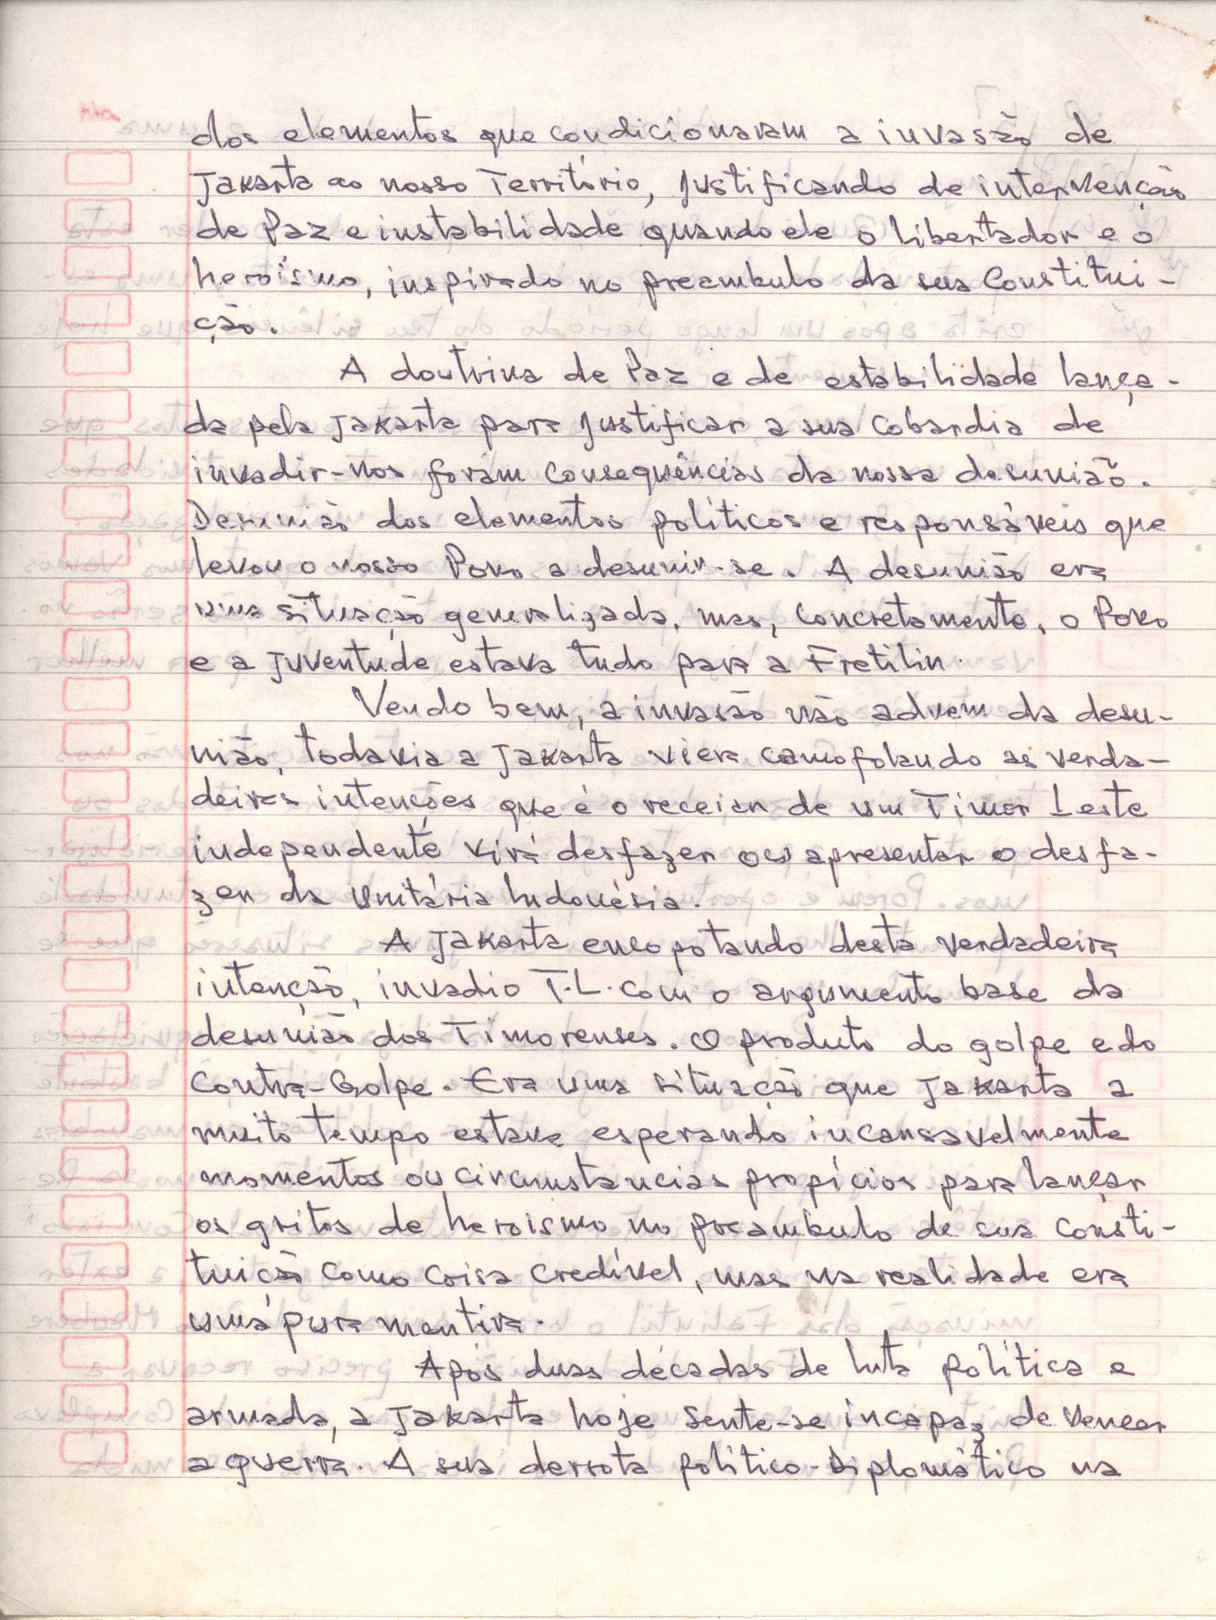 dos elementos que condicionaram a invasão de
Jakarta ao nosso Território, justificando de intervenção
de Paz e instabilidade quando ele o libertador e o
heroísmo, inspirado no preambulo da sua Constitui-
ção.
A doutrina de Paz e de estabilidade lança-
da pela Jakarta para justificar a sua Cobardia de
invadir-nos foram consequências da nossa desunião.
Desunião dos elementos políticos e responsáveis que
levou o nosso Povo a desunir-se. A desunião era
uma situação generalizada, mas, concretamente, o Povo
e a juventude estava tudo para a Fretilin.
Vendo bem, a invasão não advem da desu-
nião, todavia a Jakarta viera camofolando as verda-
deiras intenções que é o receien de um Timor Leste
independente virá desfazer ou apresentar o desfa-
zer da Unitária Indonésia.
A Jakarta encopotando desta verdadeira
intenção, invadio T.L. com o argumento base da
desunião dos Timorenses. O produto do golpe e do
Contra-Golpe. Era uma situação que Jakarta a
muito tempo estava esperando incansavelmente
momentos ou circunstancias propícios para lançar
os gritos de heroismo no preambulo de sua Consti-
tuição como coisa credível, mas na realidade era
uma pura mentira.
Após duas décadas de luta política e
armada, a Jakarta hoje sente-se incapaz de vencer
a guerra. A sua derrota político-diplomático na